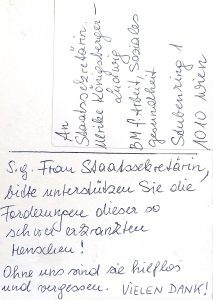 An
Staatssekretärin
Ulrike Königsberger-
Ludwig
BM f. Arbeit, Soziales
Gesundheit
Stubenring 1
1010 Wien
S.g. Frau Staatssekretärin,
bitte unterstützen Sie die
Forderungen dieser so
schwer erkrankten
Menschen!
Ohne uns sind sie hilflos
und vergessen. VIELEN DANK!